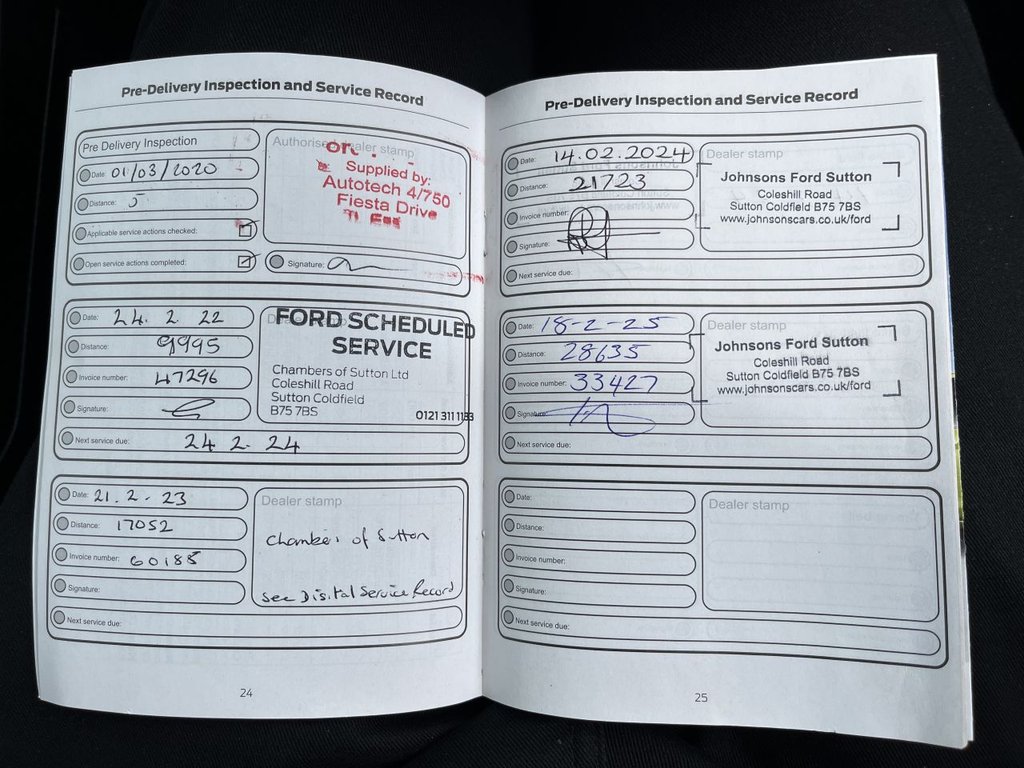 Pre-Delivery Inspection and Service Record
Pre Delivery Inspection
Date: 01/03/2020
Distance: 5
Applicable service actions checked:
Open service actions completed:
Authorised dealer stamp
Supplied by:
Autotech 4/750
Fiesta Drive
Signature:
Date: 24. 2 22
Distance: 9995
Invoice number: 47296
Signature:
Next service due: 24 2. 24
FORD SCHEDULED
SERVICE
Chambers of Sutton Ltd
Coleshill Road
Sutton Coldfield
B75 7BS
0121 311 1133
Date: 21. 2 - 23
Distance: 17052
Invoice number: 60185
Signature:
Next service due:
Dealer stamp
Chambers of Sutton
See Digital Service Record
24
Pre-Delivery Inspection and Service Record
Date: 14.02.2024
Distance: 21723
Invoice number:
Signature:
Next service due:
Dealer stamp
Johnsons Ford Sutton
Coleshill Road
Sutton Coldfield B75 7BS
www.johnsonscars.co.uk/ford
Date: 18-2-25
Distance: 28635
Invoice number: 33427
Signature:
Next service due:
Dealer stamp
Johnsons Ford Sutton
Coleshill Road
Sutton Coldfield B75 7BS
www.johnsonscars.co.uk/ford
Date:
Distance:
Invoice number:
Signature:
Next service due:
Dealer stamp
25